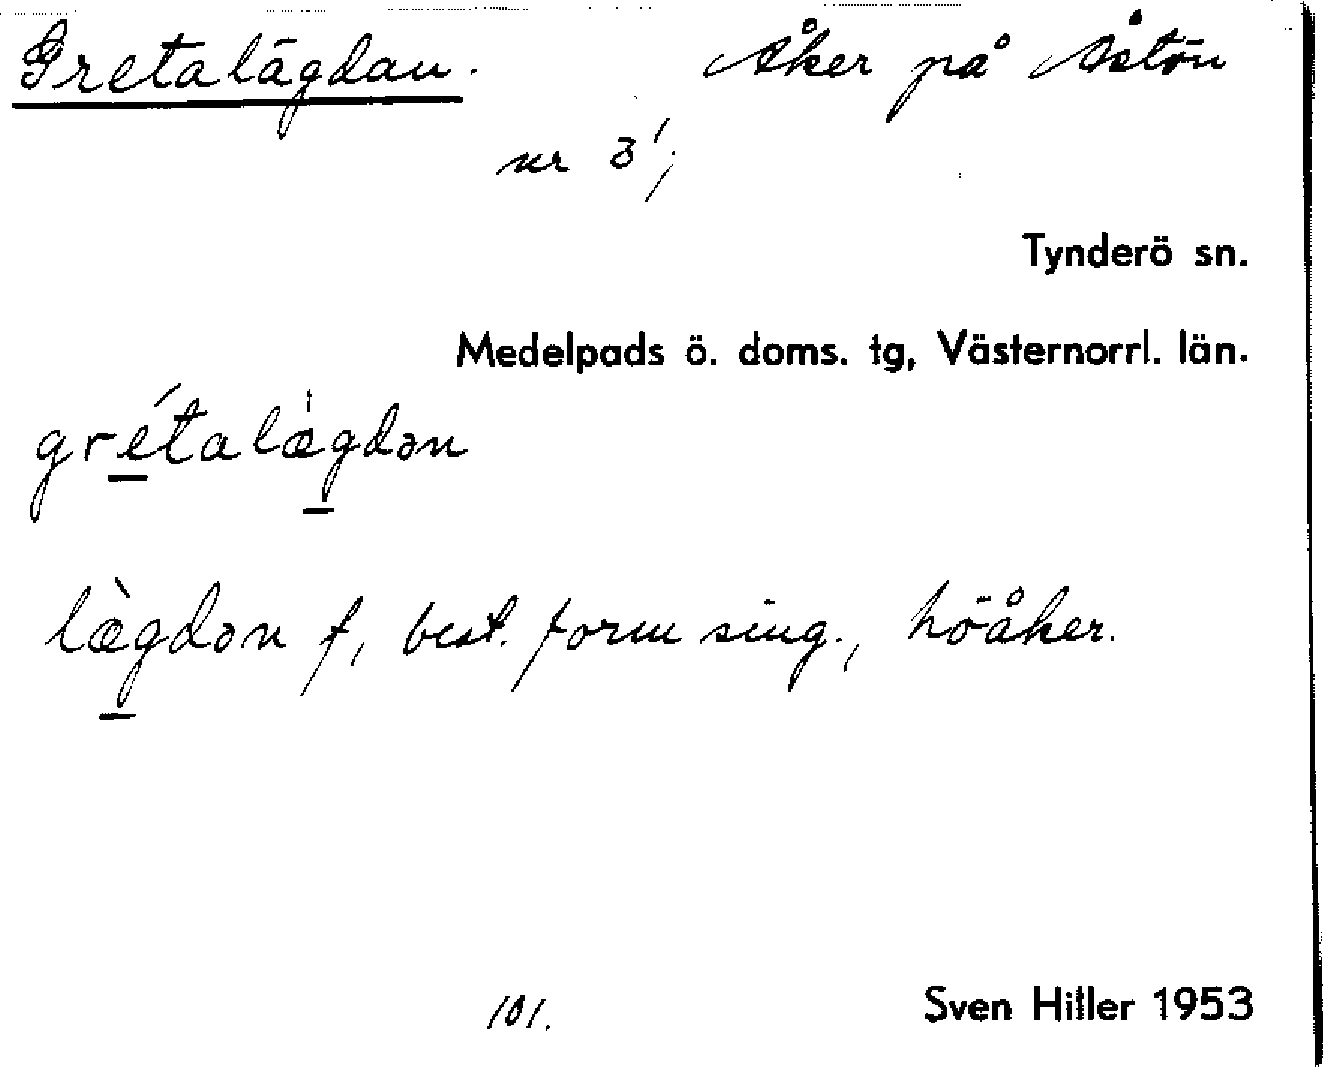 Gretalägdan. Åker på Åstön
nr 3¹;
Tynderö sn.
Medelpads ö. doms. tg, Västernorrl. län.
gre̱´talæ̀g̱dən
læ̀g̱dən f, best. form sing., höåker.
101. Sven Hiller 1953